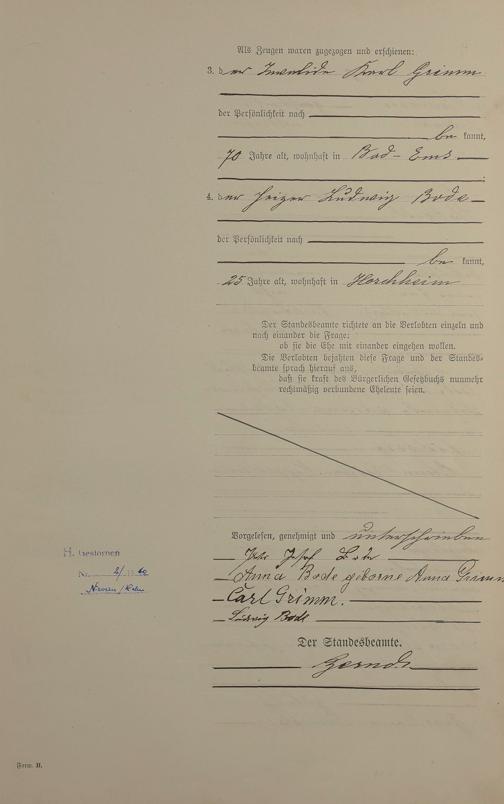 Als Zeugen waren zugezogen und erschienen:
3. der Invalide Karl Grimm
der Persönlichkeit nach
be kannt,
70 Jahre alt, wohnhaft in Bad-Ems
4. der Heizer Ludwig Bode
der Persönlichkeit nach
be kannt,
25 Jahre alt, wohnhaft in Horchheim
Der Standesbeamte richtete an die Verlobten einzeln und
nach einander die Frage:
ob sie die Ehe mit einander eingehen wollen.
Die Verlobten bejahten diese Frage und der Standes-
beamte sprach hierauf aus,
daß sie kraft des Bürgerlichen Gesetzbuchs nunmehr
rechtmäßig verbundene Eheleute seien.
Vorgelesen, genehmigt und unterschrieben
Josef Bode
Anna Bode geborne Anna Grimm
Carl Grimm.
Ludwig Bode
H. Gestorben
Nr. 2/
Der Standesbeamte.
Form. B.